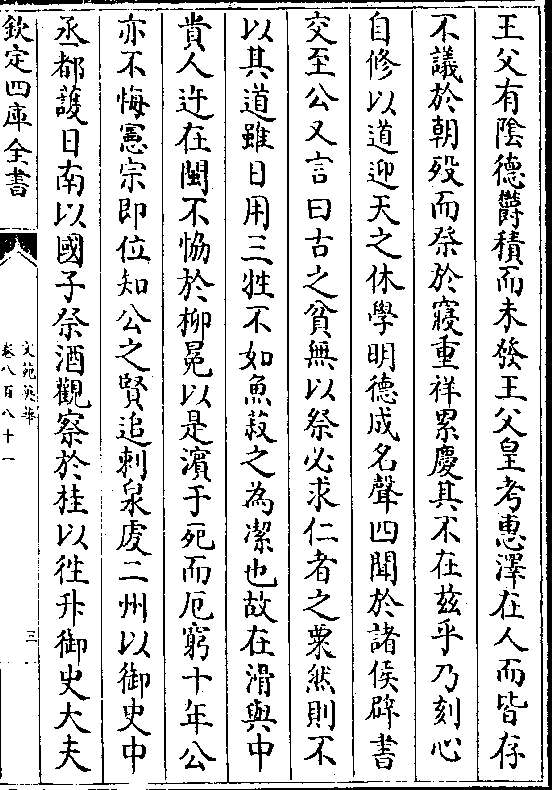 王父有陰德欝積而未發王父皇考惠澤在人而皆存
不議於朝殁而祭於寢重祥累慶其不在兹乎乃刻心
自修以道迎天之休學明德成名聲四聞於諸侯辟書
交至公又言曰古之貧無以祭必求仁者之粟然則不
以其道雖日用三牲不如魚菽之為潔也故在滑與中
貴人迕在閩不恊於柳冕以是濵于死而厄窮十年公
亦不悔憲宗即位知公之賢追刺泉䖍二州以御史中
丞都護日南以國子祭酒觀察於桂以徃升御史大夫
欽定四庫全書
文苑英華
卷八百八十一
三